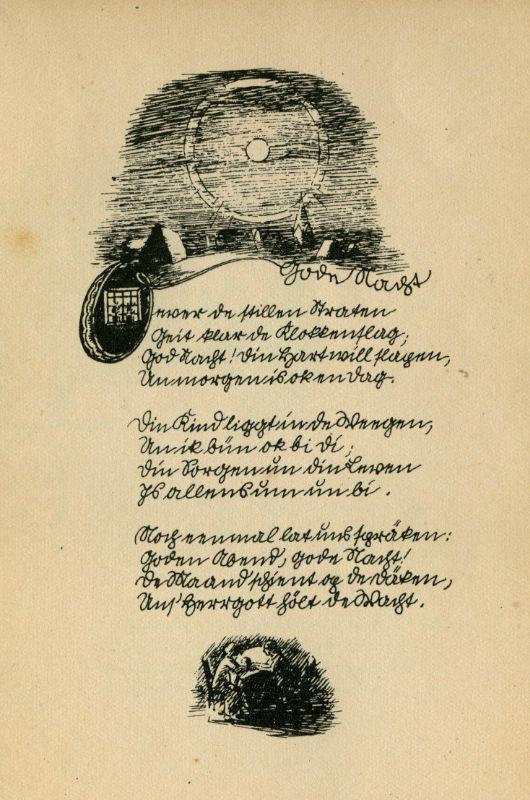 Gode Nacht
Oever de stillen Straten
Geit klar de Klokkenslag;
God Nacht! Din Hart will slapen,
Un morgen is ok en Dag.
Din Kind liggt in de Weegen,
Un ik bün ok bi di;
Din Sorgen un din Leven
Is allens um un bi.
Noch eenmal lat uns spräken:
Goden Abend, gode Nacht!
De Maand schient op de Däken,
Uns' Herrgott hölt de Wacht.